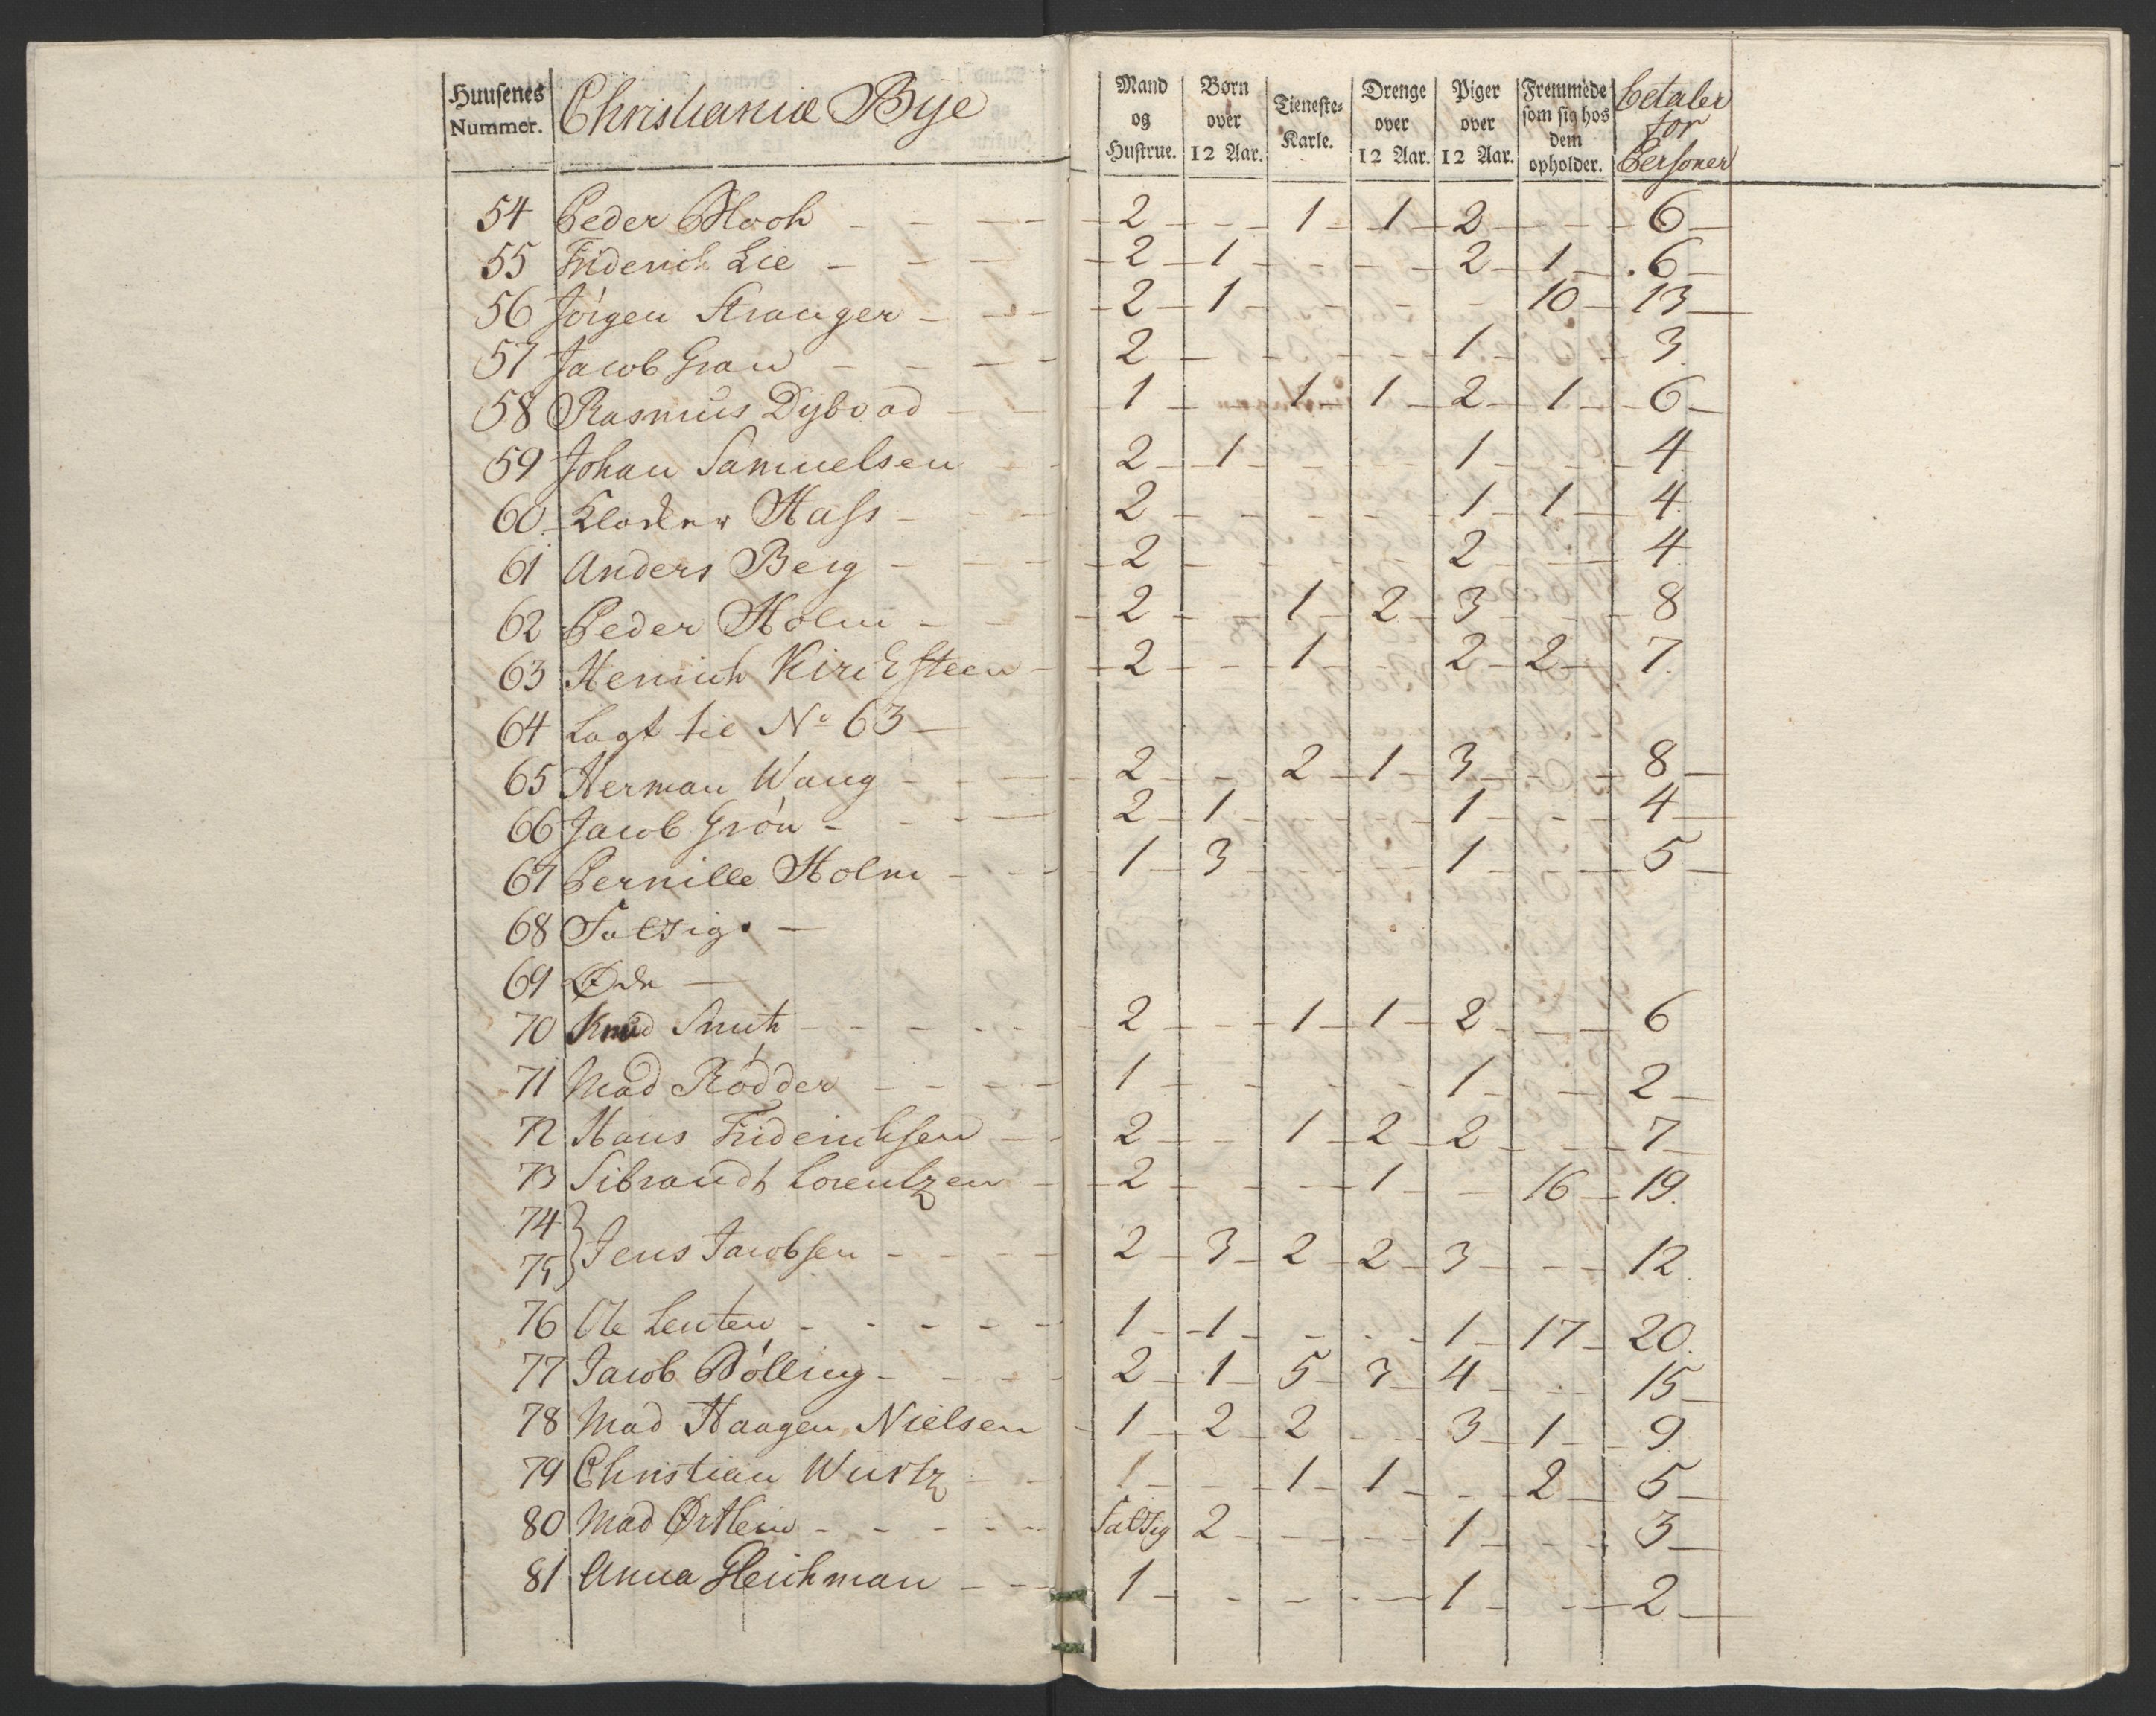 Huusenes Nummer. Christianiæ Bye Mand og Hustrue. Børn over 12 Aar. Tieneste-Karle. Drenge over 12 Aar. Piger over 12 Aar. Fremmede som sig hos dem opholder. betaler for Personer
54 Peder Hooh 2 - - 1 1 2 - - 6
55 Friderich Lie - - - 2 1 - - - 2 1 6
56 Jörgen Stranger - - - 2 1 - - - - 10 13
57 Jacob Grau - - - 2 - - - - 1 - 3
58 Rasmus Dybvad - - 1 - 1 1 2 1 6
59 Johan Samuelsen 2 1 - - 1 - 4
60 Klocker Hass - - 2 - - - 1 1 4
61 Anders Berg - - - 2 - - - 2 - 4
62 Peder Holm - - 2 - 1 2 3 - 8
63 Henrich Kircksteen - 2 - 1 - 2 2 7
64 Lagt til No 63 -
65 Herman Wang - - - 2 - 2 1 3 - 8
66 Jacob Grön - - - 2 1 - - 1 - 4
67 Pernille Holm - - - 1 3 - - 1 - 5
68 Fattig. -
69 Øde -
70 Knud Smith - - - 2 - 1 1 2 - 6
71 Mad Rödder - - - - 1 - - - 1 - 2
72 Hans Friderichsen - - 2 - 1 2 2 - 7
73 Sibrandt Lorentzen - 2 - - 1 - 16 19.
74
75 } Jens Jacobsen - - - - 2 3 2 2 3 - 12.
76 Ole Lenten - - - - - 1 1 - - 1 17 20.
77 Jacob Bölling - - - - 2 1 5 3 4 - 15
78 Mad Haagen Nielsen - 1 2 2 - 3 1 9
79 Christian Würtz - - 1 - 1 1 - 2 5
80 Mad Örtlein - - - - - Fattig 2 - - 1 - 3
81 Anna Gleichman - - 1 - - - 1 - 2